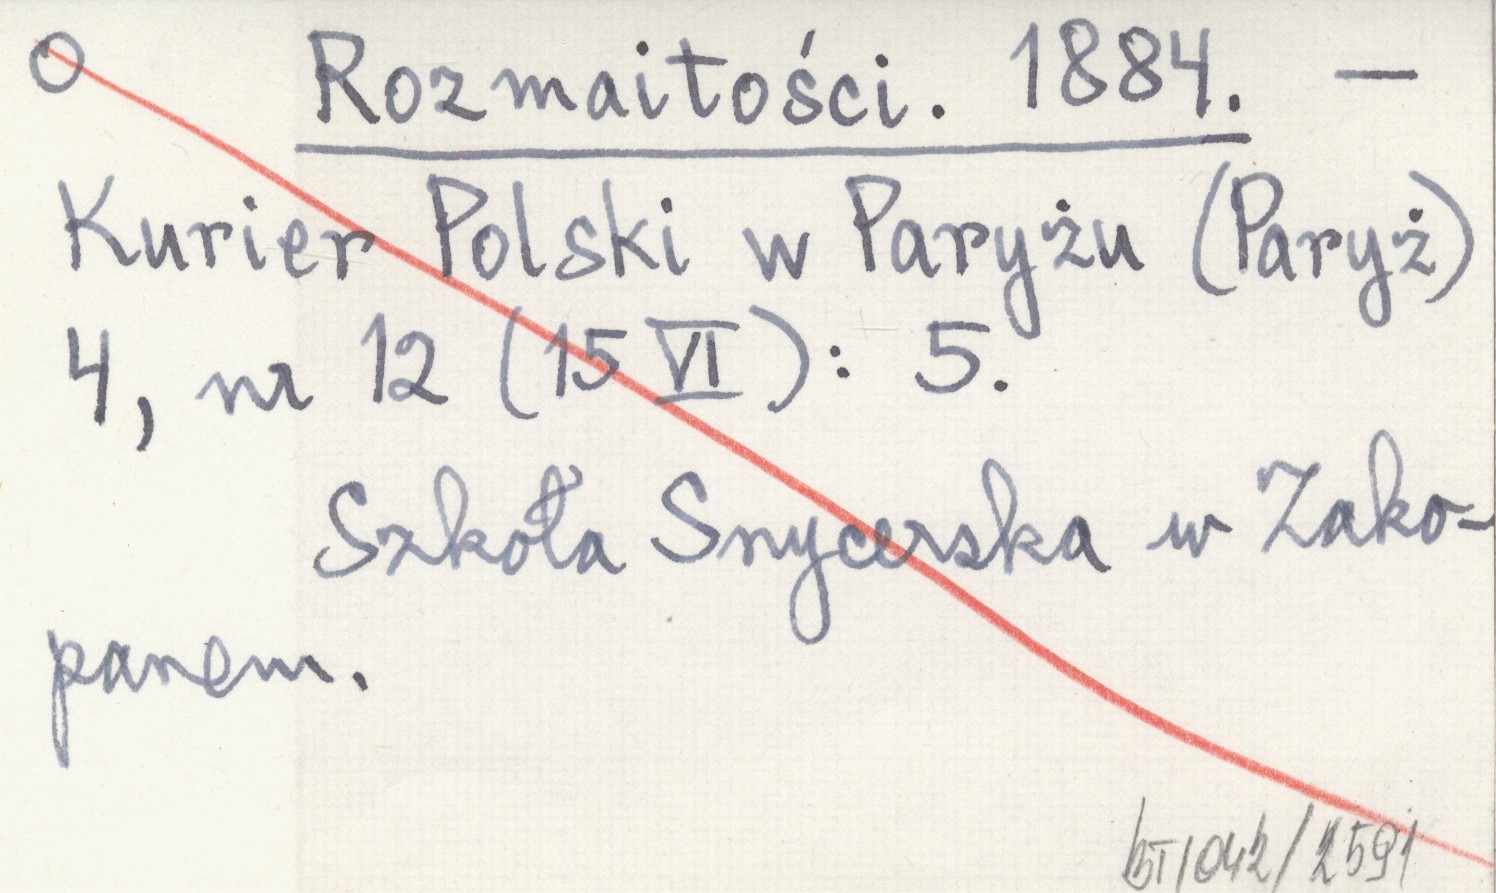 O Rozmaitości. 1884. —
Kurier Polski w Paryżu (Paryż)
4, nr 12 (15 VI): 5.
Szkoła Snycerska w Zako-
panem.
/042/2591